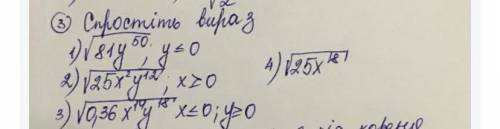 ③ Спростіть вираз
1) √81y⁵⁰; y ≤ 0
2) √25x²y¹²; x ≥ 0 4) √25x¹⁸
3) √0,36x¹⁴y¹⁸ x ≤ 0; y ≥ 0